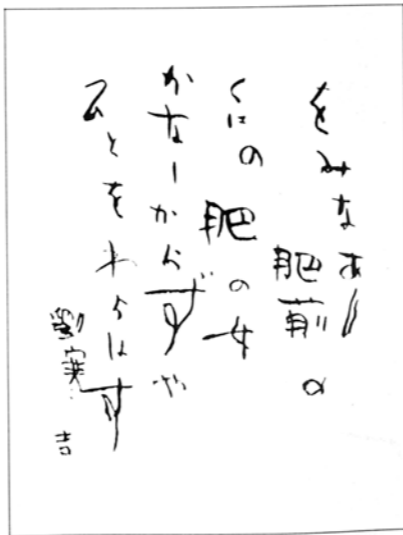 をみなあり
肥前の
くにの肥の女
かなしからずや
ひとをわらはす
劉寒吉